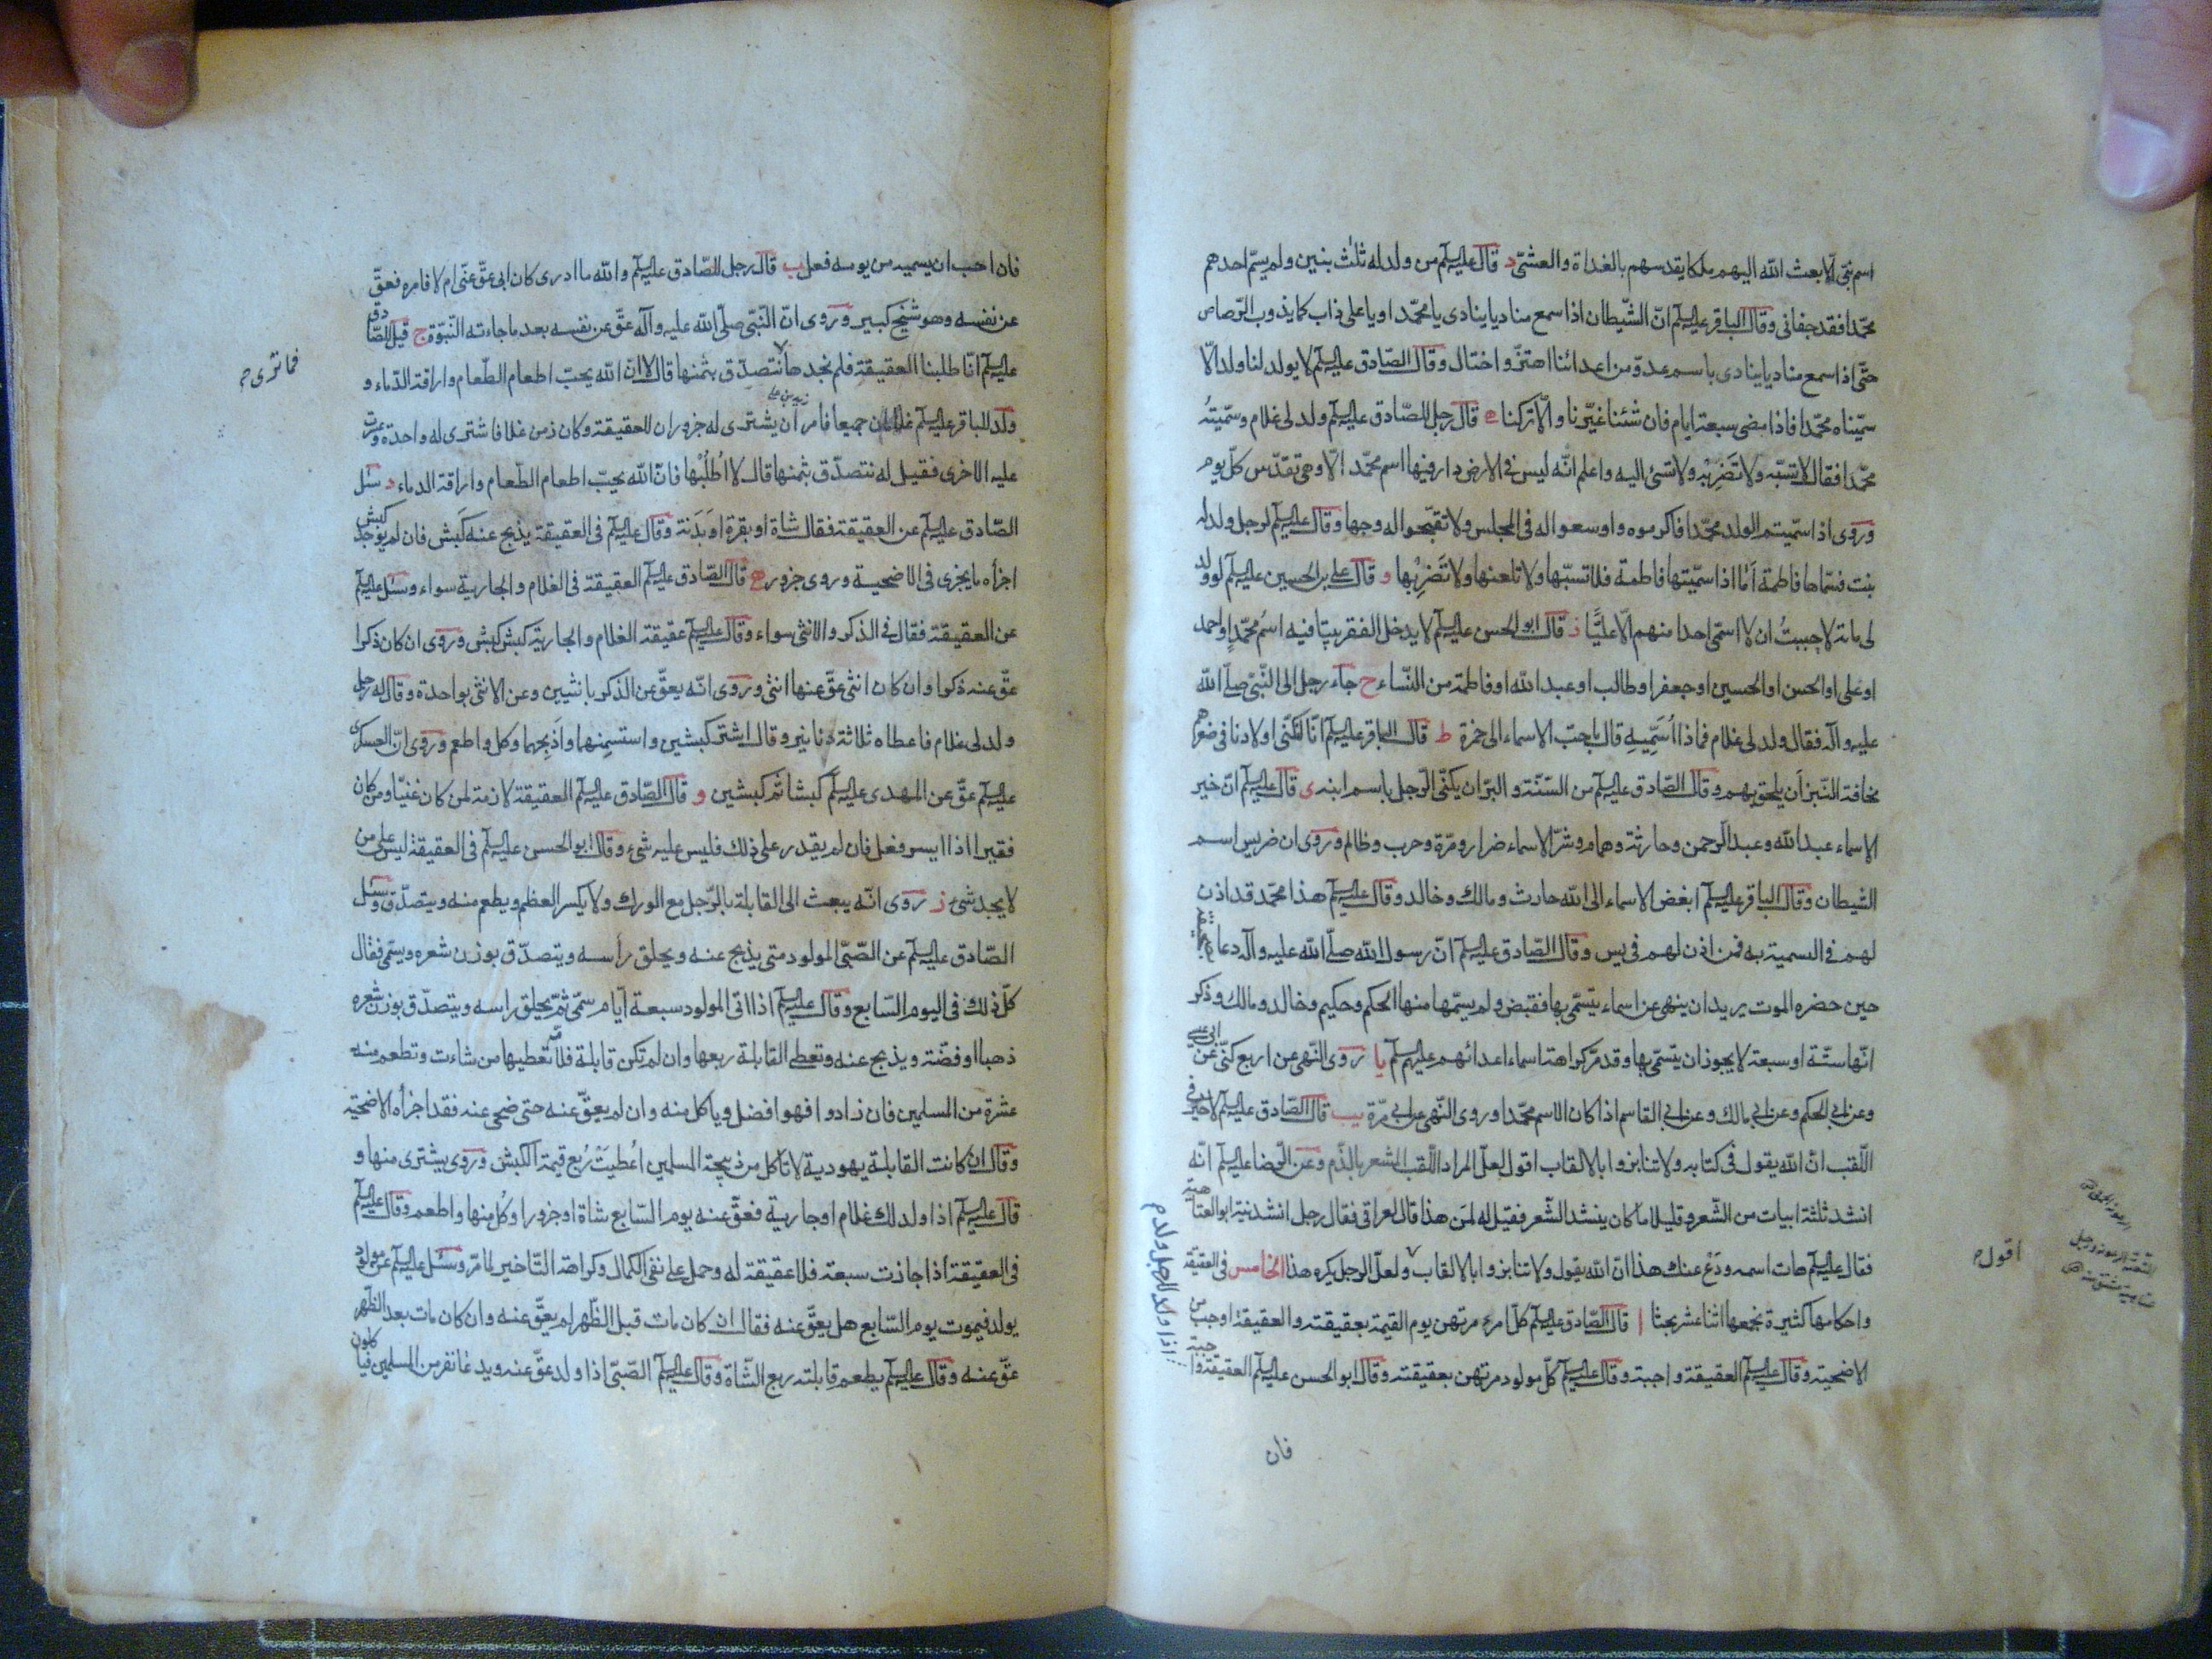 اسم نبى الا بعث الله اليهم ملكا يقدسهم بالغداة والعشىّ د قال عليه السلم من ولد له ثلث بنين ولم يسمّ احدهم
محمّدا فقد جفانى وقال الباقر عليه السلم انّ الشيطان اذا سمع مناديا ينادى يا محمّد او يا على ذاب كما يذوب الرّصاص
حتّى اذا سمع مناديا ينادى باسم عدوّ من اعدائنا اهتزّ واختال وقال الصّادق عليه السلم لا يولد لنا ولد الّا
سمّيناه محمّدا فاذا مضى سبعة ايام فان شئنا غيّرنا والّا تركنا ه قال رجل للصّادق عليه السلم ولد لى غلام وسمّيته
محمّدا فقال لا تسبّه ولا تضربه ولا تسئ اليه واعلم انّه ليس فى الارض دار فيها اسم محمّد الّا وهى تقدّس كلّ يوم
وروى اذا سمّيتم الولد محمّدا فاكرموه واوسعوا له فى المجلس ولا تقبّحوا له وجها وقال عليه السلم لرجل ولد له
بنت فسمّاها فاطمة امّا اذا سمّيتها فاطمة فلا تسبّها ولا تلعنها ولا تضربها و قال على بن الحسين عليه السلم لو ولد
لى مائة لاحببتُ ان لا اسمّى احدا منهم الّا عليّا ز قال ابو الحسن عليه السلم لا يدخل الفقر بيتا فيه اسم محمّدٍ او احمد
او على او الحسن او الحسين او جعفر او طالب او عبد الله او فاطمة من النّساء ح جاء رجل الى النّبىّ صلّى الله
عليه وآله فقال ولد لى غلام فماذا اُسَمِّيهِ قال باحبّ الاسماء الى حمزة ط قال الباقر عليه السلم انّا لنكنّى اولادنا فى صغرهم
مخافة النّبز ان يلحق بهم وقال الصّادق عليه السلم من السّنّة والبرّ ان يكنّى الرّجل باسم ابنه ى قال عليه السلم انّ خير
الاسماء عبد الله وعبد الرحمن وحارثة وهمام وشرّ الاسماء ضرار ومرّة وحرب وظالم وروى ان ضريس اسم
الشيطان وقال الباقر عليه السلم ابغض الاسماء الى الله حارث ومالك وخالد وقال عليه السلم هذا محمّد قد اذن
لهم فى التسمية به فمن اذن لهم فى يس وقال الصّادق عليه السلم انّ رسول الله صلّى الله عليه وآله دعا بصحيفة
حين حضره الموت يريد ان ينهى عن اسماء يتسمّى بها فقبض ولم يسمّها منها الحكم وحكيم وخالد ومالك وذكر
انّها ستّة او سبعة لا يجوز ان يتسمّى بها وقد مرّ كراهة اسماء اعدائهم عليهم السلم يا روى النّهى عن اربع كنّى عن ابى عيسى
وعن ابى الحكم وعن ابى مالك وعن ابى القاسم اذا كان الاسم محمّدا وروى النّهى عن ابى مرّة يب قال الصّادق عليه السلم لا خير فى
اللّقب انّ الله يقول فى كتابه ولا تنابزوا بالالقاب اقول لعلّ المراد اللّقب المشعر بالذّم وعن الرّضا عليه السلم انّه
انشد ثلثة ابيات من الشّعر وقليلا ما كان ينشد الشّعر فقيل له لمن هذا قال لعراقى فقال رجل انشدنيه ابو العتاهية
فقال عليه السلم هات اسمه ودع عنك هذا انّ الله يقول ولا تنابزوا بالالقاب ولعلّ الرجل يكره هذا الخامس فى العقيقة
واحكامها كثيرة نجمعها اثنا عشر بحثا ا قال الصّادق عليه السلم كلّ امرء مرتهن يوم القيمة بعقيقته والعقيقة اوجب من
الاضحية وقال عليه السلم العقيقة واجبة وقال عليه السلم كلّ مولود مرتهن بعقيقته وقال ابو الحسن عليه السلم العقيقة واجبة
اذا ولد للرجل ولد م
اقول م
فان
فان احب ان يسميه من يومه فعل ب قال رجل للصّادق عليه السلم والله ما ادرى كان ابى عقّ عنّى ام لا فامره فعقّ
عن نفسه وهو شيخ كبير وروى انّ النّبىّ صلّى الله عليه وآله عقّ عن نفسه بعد ما جاءته النّبوّة ج قيل للصّادق
عليه السلم انّا طلبنا العقيقة فلم نجدها نتصدّق بثمنها قال لا انّ الله يحبّ اطعام الطّعام واراقة الدّماء و
فما ترى م
ولد للباقر عليه السلم غلامان جميعا فامر زيد بن على ان يشترى له جزوران للعقيقة وكان زمن غلا فاشترى له واحدة وعسرت
عليه الاخرى فقيل له نتصدّق بثمنها قال لا اطلُبْها فانّ الله يحبّ اطعام الطّعام واراقة الدماء د سئل
الصّادق عليه السلم عن العقيقة فقال شاة او بقرة او بَدَنة وقال عليه السلم فى العقيقة يذبح عنه كبش فان لم يوجد كبش
اجزاه ما يجزى فى الاضحية وروى جزور ه قال الصّادق عليه السلم العقيقة فى الغلام والجارية سواء وسئل عليه السلم
عن العقيقة فقال فى الذكر والانثى سواء وقال عليه السلم عقيقة الغلام والجارية كبش كبش وروى ان كان ذكرا
عقّ عنه ذكرا وان كان انثى عقّ عنها انثى وروى انّه يعقّ عن الذكر بانثيين وعن الانثى بواحدة وقال له رجل
ولد لى غلام فاعطاه ثلاثة دنانير وقال اشتر كبشين واستسمنها واذبحهما وكل واطعم وروى انّ العسكرى
عليه السلم عقّ عن المهدى عليه السلم كبشا ثم كبشين و قال الصّادق عليه السلم العقيقة لازمة لمن كان غنيّا ومن كان
فقيرا اذا ايسر فعل فان لم يقدر على ذلك فليس عليه شىء وقال ابو الحسن عليه السلم فى العقيقة ليس على من
لا يجد شىء ز روى انّه يبعث الى القابلة بالرّجل مع الورك ولا يكسر العظم ويطعم منه ويتصدّق وسئل
الصّادق عليه السلم عن الصّبىّ المولود متى يذبح عنه ويحلق رأسه ويتصدّق بوزن شعره ويسمّى فقال
كلّ ذلك فى اليوم السّابع وقال عليه السلم اذا اتى المولود سبعة ايّام سمّى ثمّ يحلق راسه ويتصدّق بوزن شعره
ذهبا او فضّة ويذبح عنه وتعطى القابلة ربعها وان لم تكن قابلة فلامّه تعطيها من شاءت وتطعم منه
عشرة من المسلمين فان زادوا فهو افضل ويأكل منه وان لم يعقّ عنه حتى ضحى عنه فقد اجزاه الاضحيّة
وقال ان كانت القابلة يهودية لا تأكل من ذبيحة المسلمين اُعطِيَتْ رُبع قيمة الكبش وروى يشترى منها و
قال عليه السلم اذا ولد لك غلام او جارية فعقّ عنه يوم السّابع شاة او جزورا وكُل منها واطعم وقال عليه السلم
فى العقيقة اذا جازت سبعة فلا عقيقة له وحمل على نفى الكمال وكراهة التّاخير لما مرّ وسئل عليه السلم عن مولود
يولد فيموت يوم السّابع هل يعقّ عنه فقال ان كان مات قبل الظّهر لم يعقّ عنه وان كان مات بعد الظّهر
عقّ عنه وقال عليه السلم يطعم قابلته ربع الشّاة وقال عليه السلم الصّبىّ اذا ولد عقّ عنه ويدعا نفر من المسلمين فياكلون